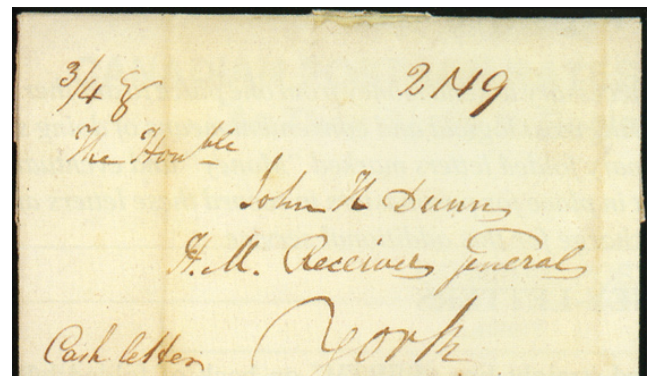 3/4 2 N 9
The Honble
John H Dunn
H. M. Receiver general
York
Cash letter